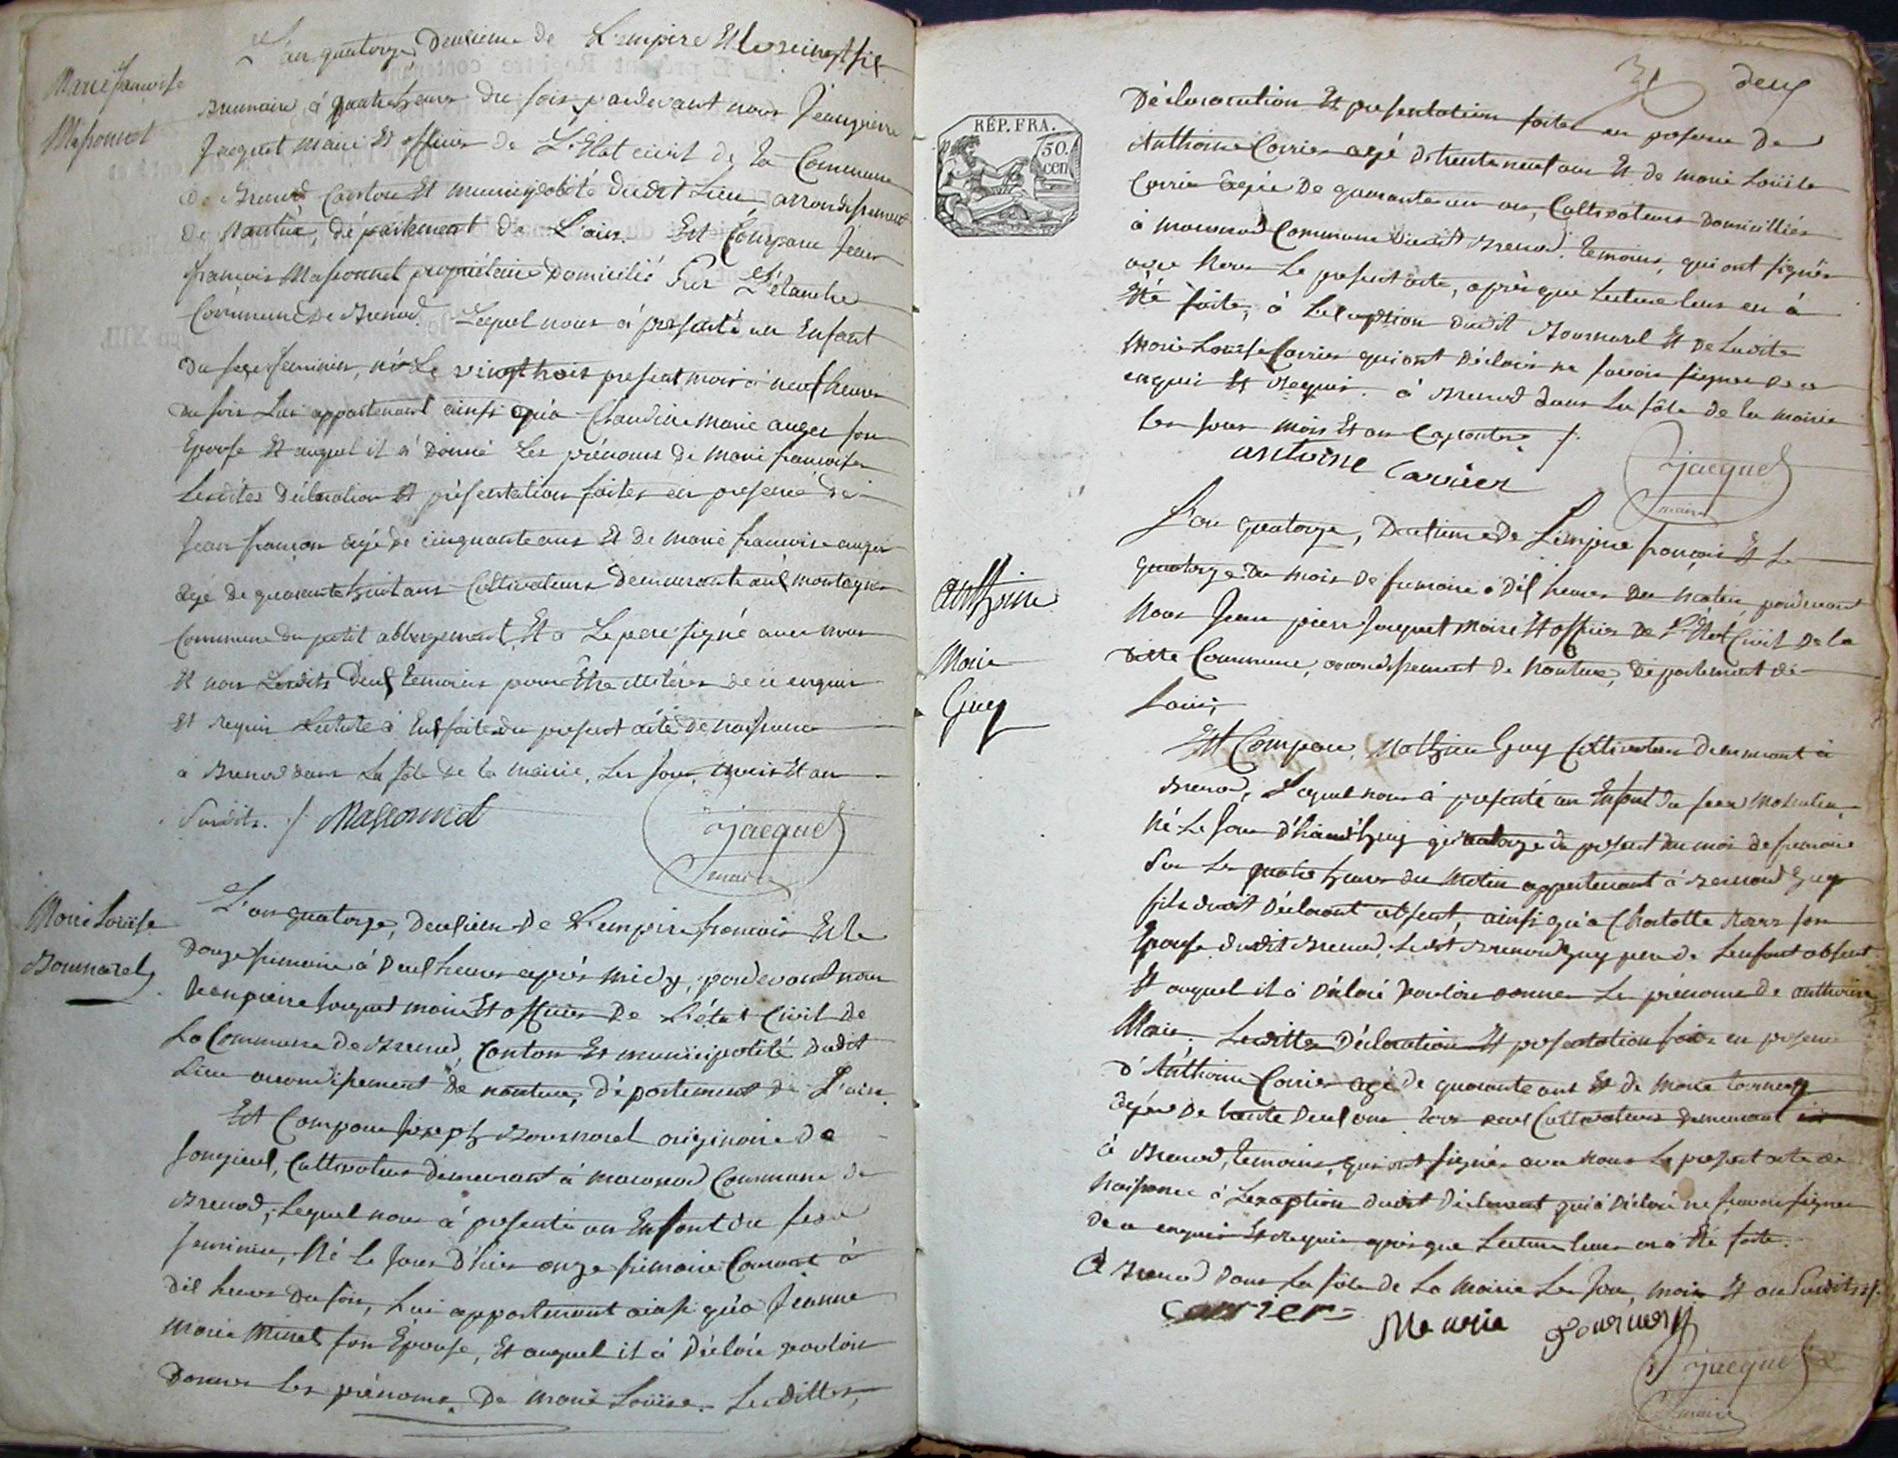 Marie françoise
Massonnet
L'an quatorze, Deuxieme de L'empire Et le vingt six
Brumaire à quatre heures du soir pardevant nous Jeanpierre
Jacquet maire Et officier de L'Etat civil de la Commune
de Brenod Canton Et municipalité dudit Lieu, arrondissement
de Nantua, département de L'ain. Est Comparu Jean
françois Massonnet propriétaire Domicilié Sur L'étanche
Commune de Brenod. Lequel nous à presenté un Enfant
du sexe feminin, né Le vingt trois present mois à neuf heures
du soir Lui appartenant ainsi qu'a Claudine Marie auger son
Epouse Et auquel il à Donné Les prénoms de Marie françoise
Lesdites Déclaration Et présentation faites en presence de
Jean françois âgé de cinquante ans Et de Marie francoise auger
âgé de quarante huit ans Cultivateurs Demeurant aux montagnes
Commune du petit abbergement, Et a Le pere signé avec nous
Et non Lesdits Deux temoins pour Etre illitérés de ce enquis
Et requis Lecture à Eux faite du present acte de naissance
à Brenod dans La sale de la mairie, Les jour, mois Et an
Susdits. / Massonnet
Jacquet
maire
Marie Louïse
Bournarel
L'an quatorze, Deuxieme De L'empire francois Et le
Douze frimaire à Deux heures après midy, pardevant nous
Jeanpierre Jacquet maire Et officier De L'état Civil de
La Commune de Brenod, Canton Et municipalité Dudit
Lieu arrondissement de nantua, département de L'ain.
Est Comparu Joseph Bournarel originaire de
Songieul, Cultivateur demeurant à Macconod Commune de
Brenod, Lequel nous à presenté un Enfant du sexe
feminin, Né Le Jour D'hier onze frimaire Courant à
Dix heures Du soir, Lui appartenant ainsi qu'a Jeanne
Marie Minet son Epouse, Et auquel il à Déclaré vouloir
Donner Les prénoms De Marie Louïse. Lesdittes
deux
RÉP. FRA.
50.
cen
Déclaration Et presentation faites en presence De
Anthoine Carrier agé De trente neuf ans Et de marie Loüise
Carrier âgée De quarante un an, Cultivateurs Domicilliés
à Macconod Commune Dudit Brenod. temoins, qui ont signés
avec Nous Le present acte, après que Lecture leur en à
Eté faite, à L'exception dudit Bournarel Et de Ladite
Marie Louise Carrier qui ont Déclaré ne savoir signer de ce
enquis Et requis. à Brenod dans La sâle de la mairie
Les jour mois Et an Cy contre. /.
antoine Carrier
Jacquet
maire
Anthoine
Marie
Guy
L'an quatorze, Deuxieme De L'Empire francois Et Le
quatorze Du mois De frimaire à Dix heures Du matin, pardevant
Nous Jean pierre Jacquet Maire Et officier De L'Etat Civil De la
ditte Commune, arrondissement de Nantua, Département de
L'ain,
Est Comparu, Mathieu Guy Cultivateur Demeurant à
Brenod, Lequel nous à presenté un Enfant Du sexe Masculin,
Né Le Jour D'hiaud'huy quatorze du present du mois de frimaire
Sur Les quatre heures du Matin appartenant à Bernard Guy
fils dudit Déclarant absent, ainsi qu'a Charlotte son
Epouse dudit Brenod. Ledit Guy pere de Lenfant absent
Et auquel il à Déclaré Vouloir donner Le prénoms de anthoine
Marie. Lesdittes Déclaration Et presentation faite en presence
d'Anthoine Carrier agé de quarante ans Et de Marie
âgée De trente Deux ans tous deux Cultivateurs demeurant
à Brenod, temoins, qui ont signés avec nous Le present acte de
Naissance à Lexception dudit Déclarant qui à Déclaré ne savoir signer
de ce enquis Et requis après que Lecture leur en à Eté faite.
à Brenod Dans La sâle de La Mairie Les jour, mois Et an Susdits /.
Carrier
Marie
Jacquet
maire